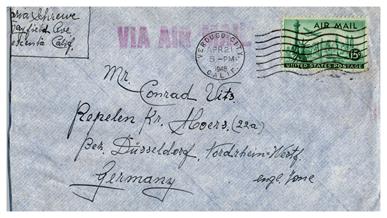 Mayfield Ave
Calif.
VIA AIR MAIL
VERDUGO CITY,
APR 21
5-PM
1948
CALIF.
AIR MAIL
15¢
UNITED STATES POSTAGE
Mr. Conrad Uits
Repelen Kr. Moers, (22a)
Bez. Düsseldorf, Nordrhein-Westf.
Germany
engl. Zone